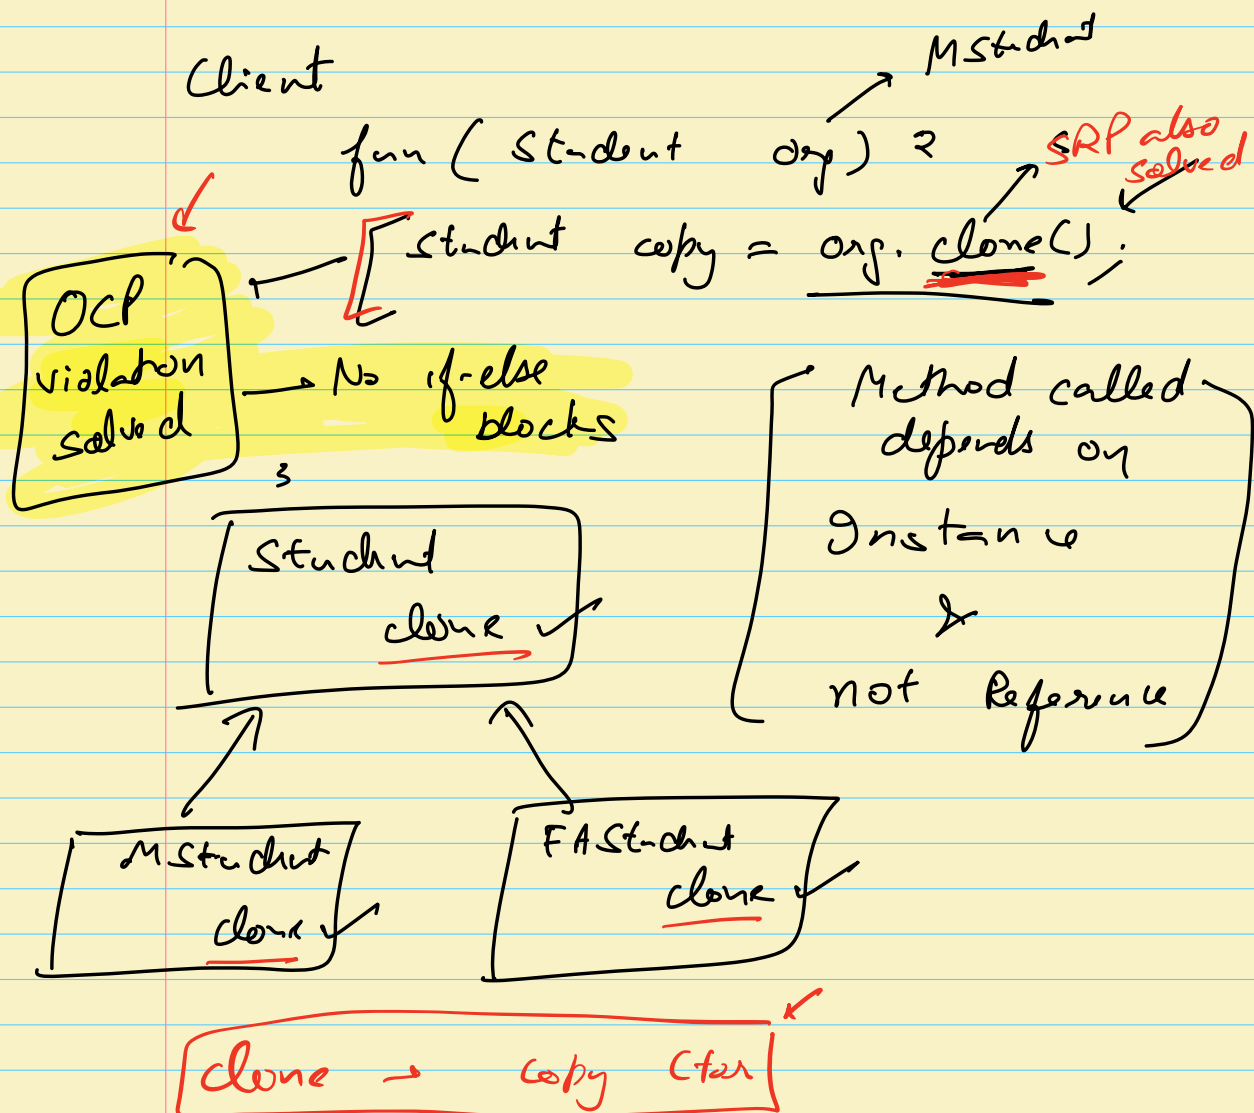 Client
MStudent
fun ( Student org) {
SRP also
solved
Student copy = org. clone();
OCP
violation
solved
No if-else
blocks
}
Method called
depends on
Instance
&
not Reference
Student
clone
MStudent
clone
FAStudent
clone
clone → copy Ctor